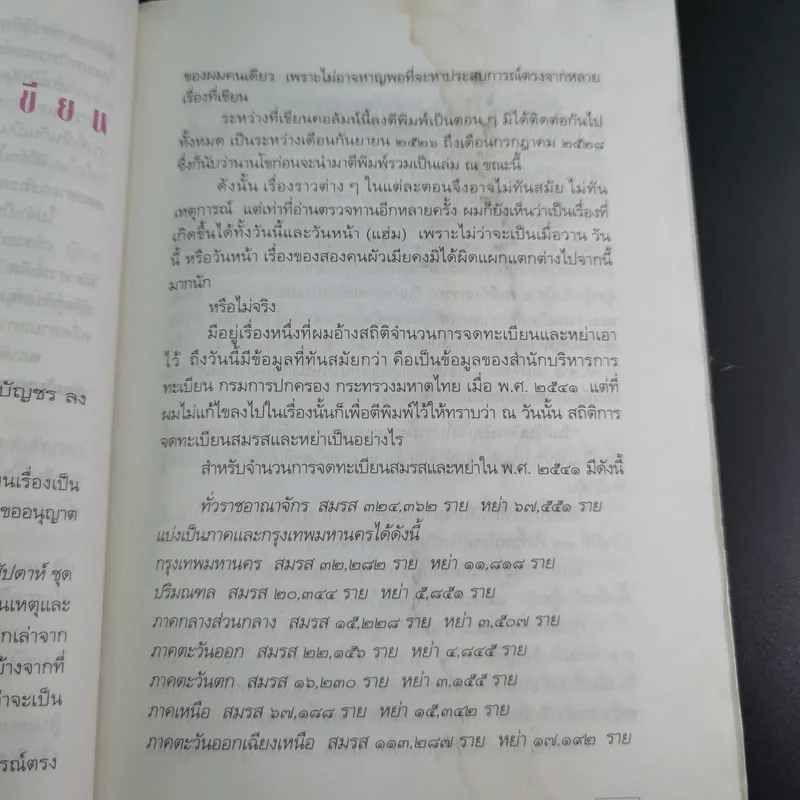 ขียน
บัญชร ลง
นเรื่องเป็น
ขออนุญาต
ัปดาห์ ชุด
นเหตุและ
กเล่าจาก
้างจากที่
าจะเป็น
รณ์ตรง
ของผมคนเดียว เพราะไม่อาจหาญพอที่จะหาประสบการณ์ตรงจากหลาย
เรื่องที่เขียน
ระหว่างที่เขียนคอลัมน์นี้ลงตีพิมพ์เป็นตอน ๆ มิได้ติดต่อกันไป
ทั้งหมด เป็นระหว่างเดือนกันยายน ๒๕๒๖ ถึงเดือนกรกฎาคม ๒๕๒๘
ซึ่งก็นับว่านานโขก่อนจะนำมาตีพิมพ์รวมเป็นเล่ม ณ ขณะนี้
ดังนั้น เรื่องราวต่าง ๆ ในแต่ละตอนจึงอาจไม่ทันสมัย ไม่ทัน
เหตุการณ์ แต่เท่าที่อ่านตรวจทานอีกหลายครั้ง ผมก็ยังเห็นว่าเป็นเรื่องที่
เกิดขึ้นได้ทั้งวันนี้และวันหน้า (แฮ่ม) เพราะไม่ว่าจะเป็นเมื่อวาน วัน
นี้ หรือวันหน้า เรื่องของสองคนผัวเมียคงมิได้ผิดแผกแตกต่างไปจากนี้
มากนัก
หรือไม่จริง
มีอยู่เรื่องหนึ่งที่ผมอ้างสถิติจำนวนการจดทะเบียนและหย่าเอา
ไว้ ถึงวันนี้มีข้อมูลที่ทันสมัยกว่า คือเป็นข้อมูลของสำนักบริหารการ
ทะเบียน กรมการปกครอง กระทรวงมหาดไทย เมื่อ พ.ศ. ๒๕๔๑ แต่ที่
ผมไม่แก้ไขลงไปในเรื่องนั้นก็เพื่อตีพิมพ์ไว้ให้ทราบว่า ณ วันนั้น สถิติการ
จดทะเบียนสมรสและหย่าเป็นอย่างไร
สำหรับจำนวนการจดทะเบียนสมรสและหย่าใน พ.ศ. ๒๕๔๑ มีดังนี้
ทั่วราชอาณาจักร สมรส ๓๒๔,๓๖๒ ราย หย่า ๖๗,๕๕๑ ราย
แบ่งเป็นภาคและกรุงเทพมหานครได้ดังนี้
กรุงเทพมหานคร สมรส ๓๒,๒๘๒ ราย หย่า ๑๑,๘๑๘ ราย
ปริมณฑล สมรส ๒๐,๓๔๔ ราย หย่า ๕,๘๕๑ ราย
ภาคกลางส่วนกลาง สมรส ๑๕,๒๒๘ ราย หย่า ๓,๕๐๗ ราย
ภาคตะวันออก สมรส ๒๒,๑๕๖ ราย หย่า ๔,๘๔๕ ราย
ภาคตะวันตก สมรส ๑๖,๒๓๐ ราย หย่า ๓,๑๕๕ ราย
ภาคเหนือ สมรส ๖๗,๑๘๘ ราย หย่า ๑๕,๓๔๒ ราย
ภาคตะวันออกเฉียงเหนือ สมรส ๑๑๓,๒๘๗ ราย หย่า ๑๗,๑๙๒ ราย